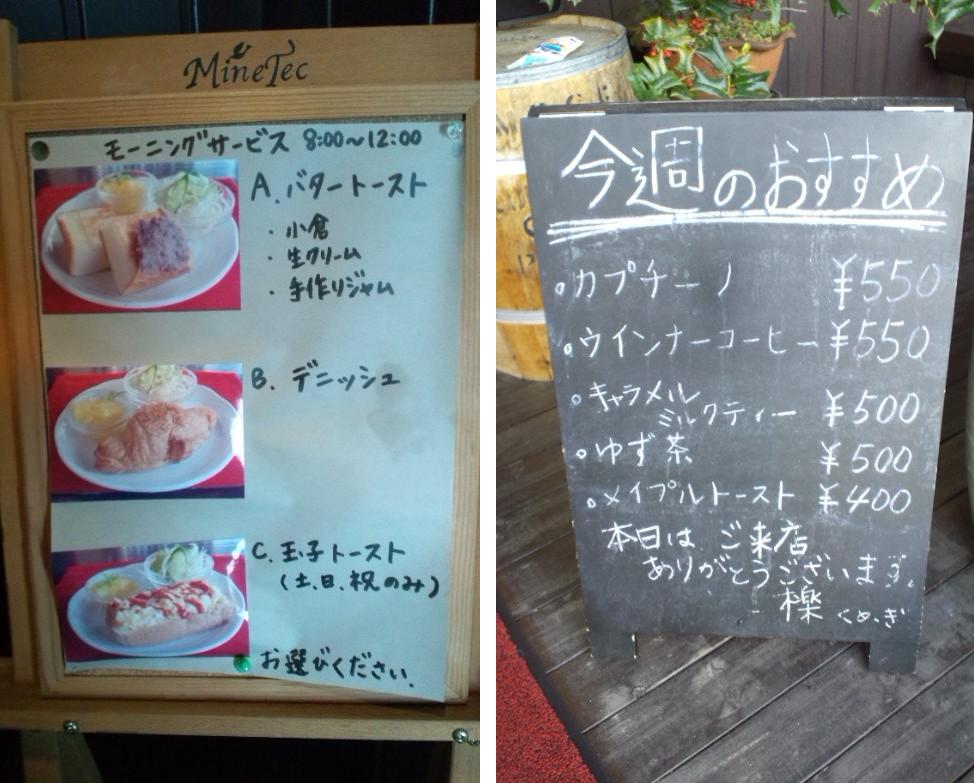 MineTec
モーニングサービス 8:00〜12:00
A. バタートースト
・小倉
・生クリーム
・手作りジャム
B. デニッシュ
C. 玉子トースト
(土、日、祝のみ)
お選びください.
今週のおすすめ
カプチーノ ¥550
ウインナーコーヒー ¥550
キャラメル
ミルクティー ¥500
ゆず茶 ¥500
メイプルトースト ¥400
本日は ご来店
ありがとうございます。
くめぎ